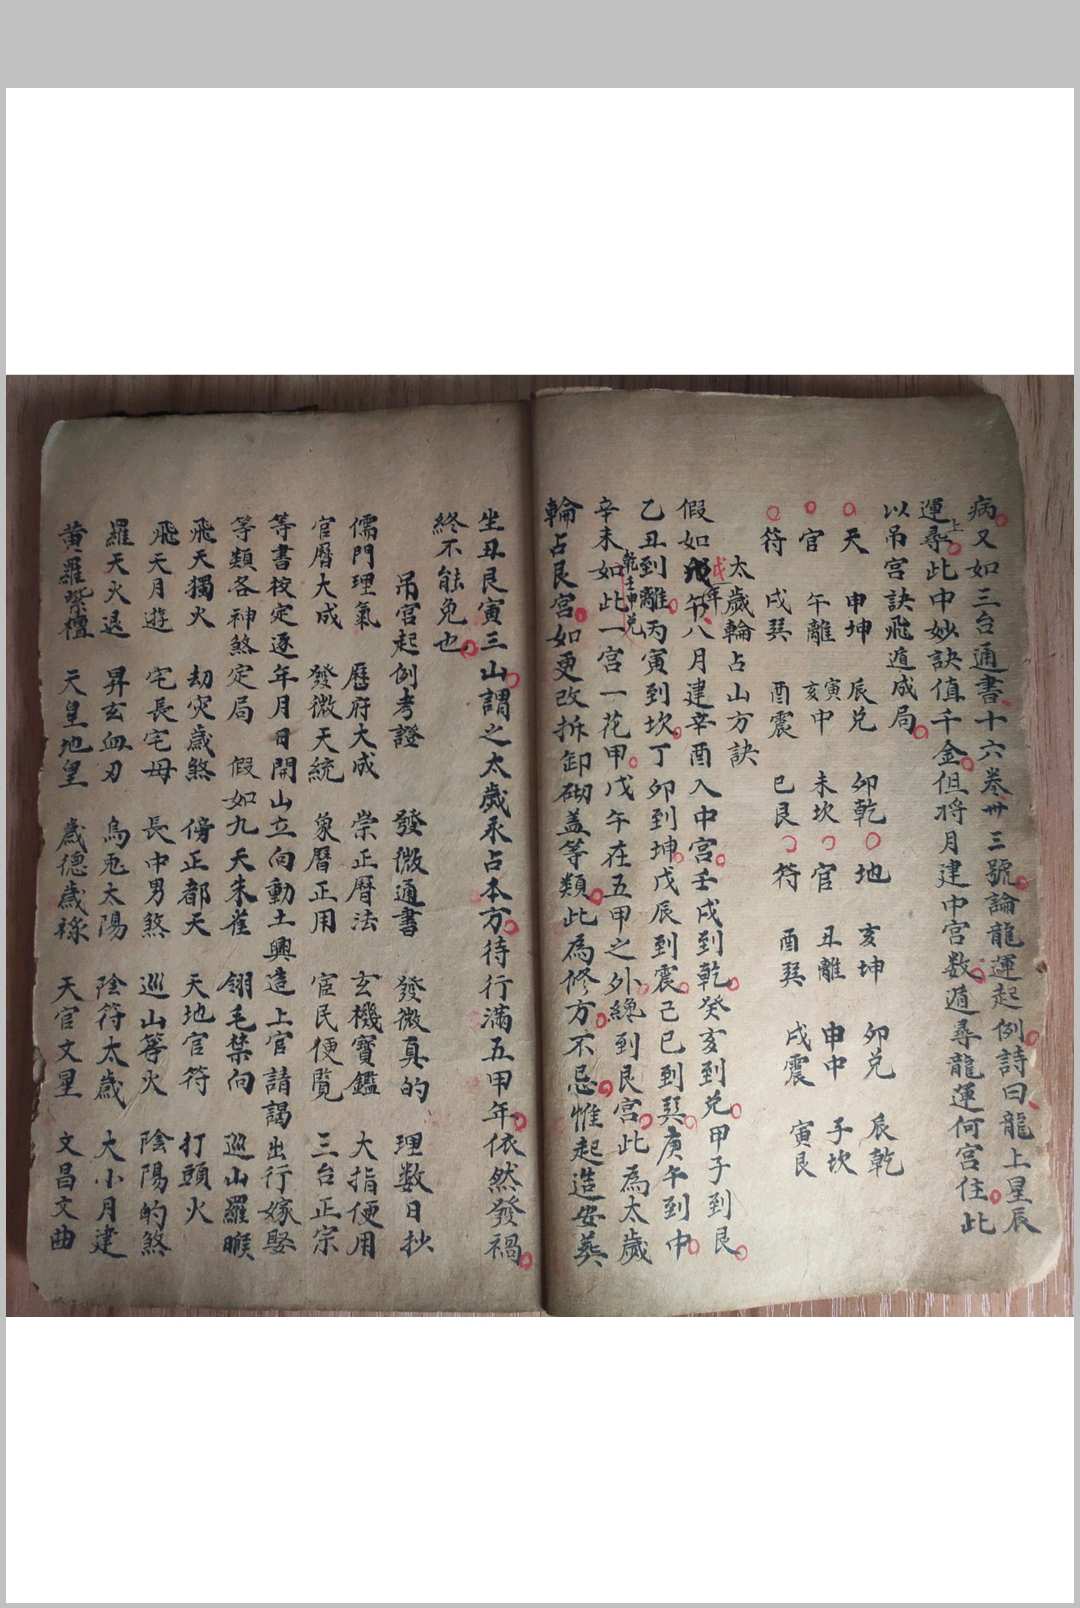 病又如三台通書十六卷卅三號論龍運起例詩曰龍上星辰
運上尋此中妙訣值千金但將月建中宮数遁尋龍運何宮住此
以吊宮訣飛遁成局
天 申坤 辰兌 卯乾 地 亥坤 卯兌 辰乾
官 午離 亥寅中 未坎 官 丑離 申中 子坎
符 戌巽 酉震 巳艮 符 酉巽 戌震 寅艮
太歲輪占山方訣
假如戌午年八月建辛酉入中宮壬戌到乾癸亥到兌甲子到艮
乙丑到離丙寅到坎丁卯到坤戊辰到震己巳到巽庚午到中
辛未如此乾壬申兌一宮一花甲戊午在五甲之外總到艮宮此為太歲
輪占艮宮如更改拆卸砌盖等類此為修方不忌惟起造安葬
坐丑艮寅三山謂之太歲承占本方待行滿五甲年依然發禍
終不能免也
吊宮起例考證 發微通書 發微真的 理数日抄
儒門理氣 曆府大成 崇正曆法 玄機寶鑑 大指便用
官曆大成 發微天統 象曆正用 宦民便覧 三台正宗
等書校定逐年月日開山立向動土興造上官請謁出行嫁娶
等類各神煞定局 假如九天朱雀 翎毛禁向 巡山羅睺
飛天獨火 劫灾歲煞 傍正都天 天地官符 打頭火
飛天月遊 宅長宅母 長中男煞 巡山等火 陰陽的煞
羅天火退 昇玄血刃 烏兎太陽 陰符太歲 大小月建
黄羅紫檀 天皇地皇 歲德歲祿 天官文星 文昌文曲